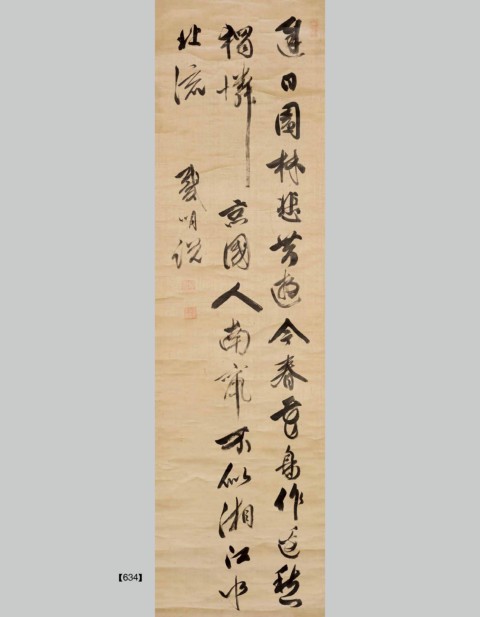 遲日園林悲昔遊今春花鳥作邊愁
獨憐京國人南竄不似湘江水
北流 戴明說
【634】